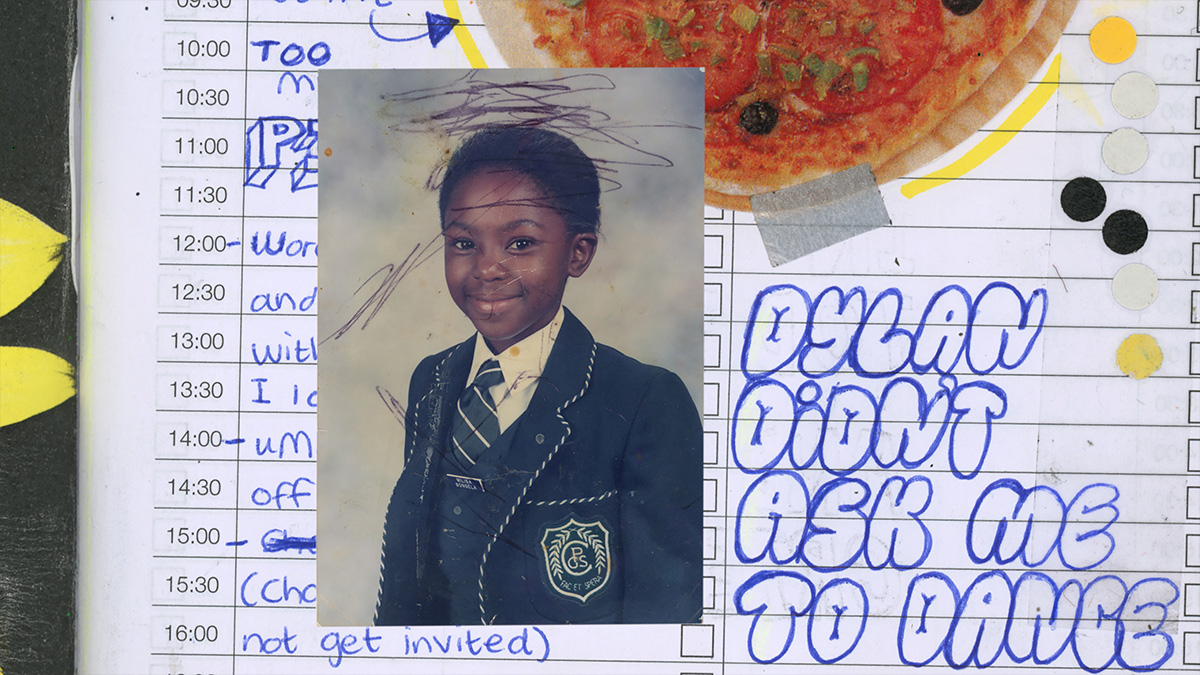 09:30
10:00 TOO
10:30
11:00
11:30
12:00
12:30 and
13:00
13:30 I
14:00
14:30 off
15:00
15:30
16:00 not get invited)
FAC ET SPERA
DYLAN
DiDN'T
ASK ME
TO DANCE